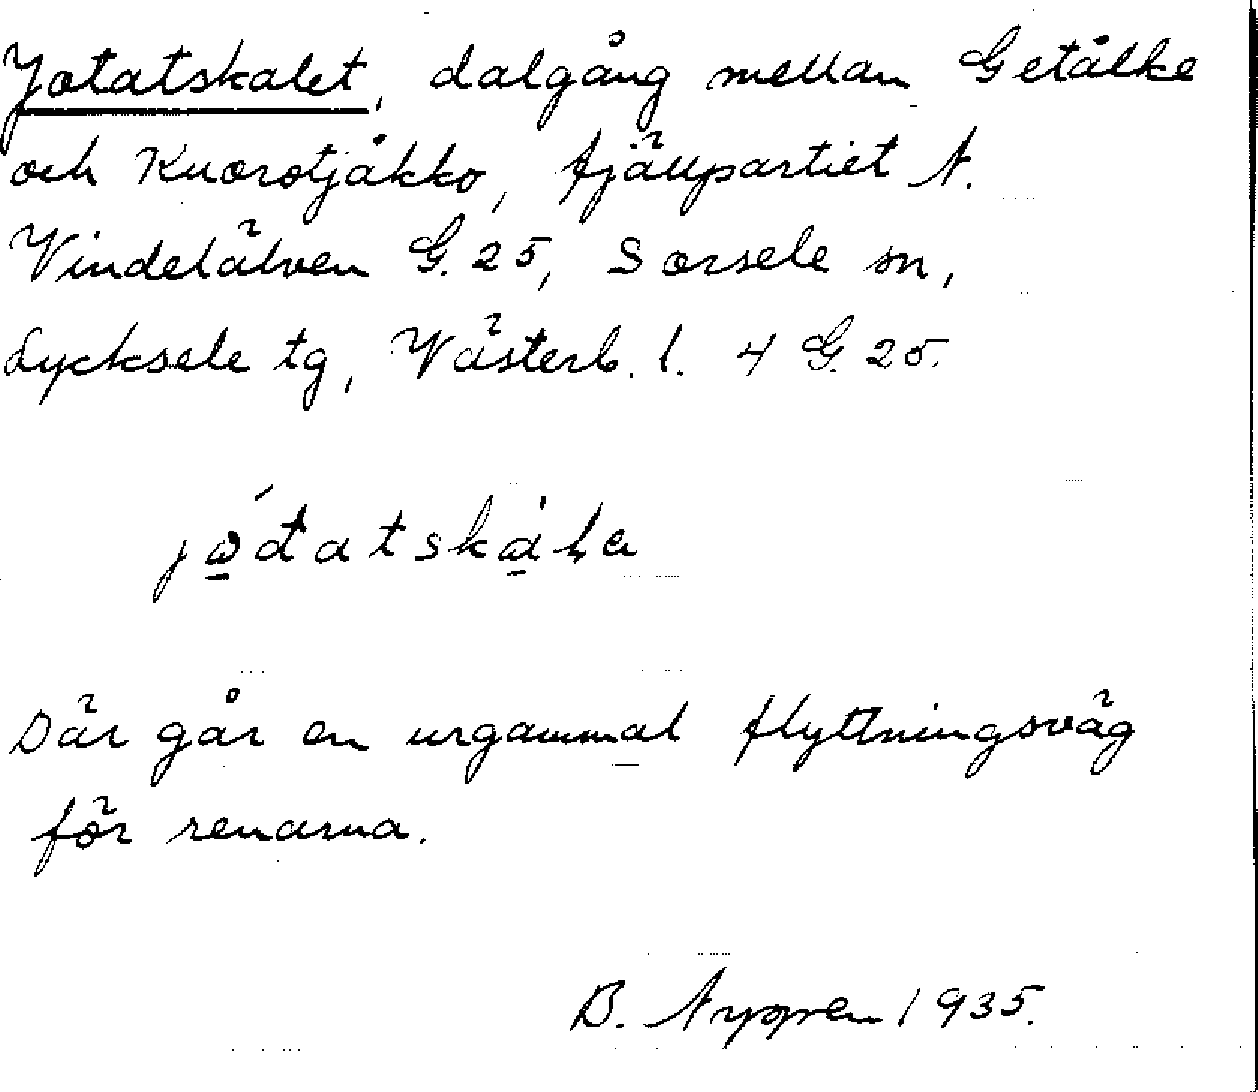 Jotatskalet, dalgång mellan Getålke
och Kuorotjåkko, fjällpartiet N.
Vindelälven G. 25, Sorsele sn,
Lycksele tg, Västerb. l. 4 G. 25.
Där går en urgammal flyttningsväg
för renarna.
B. 1935.